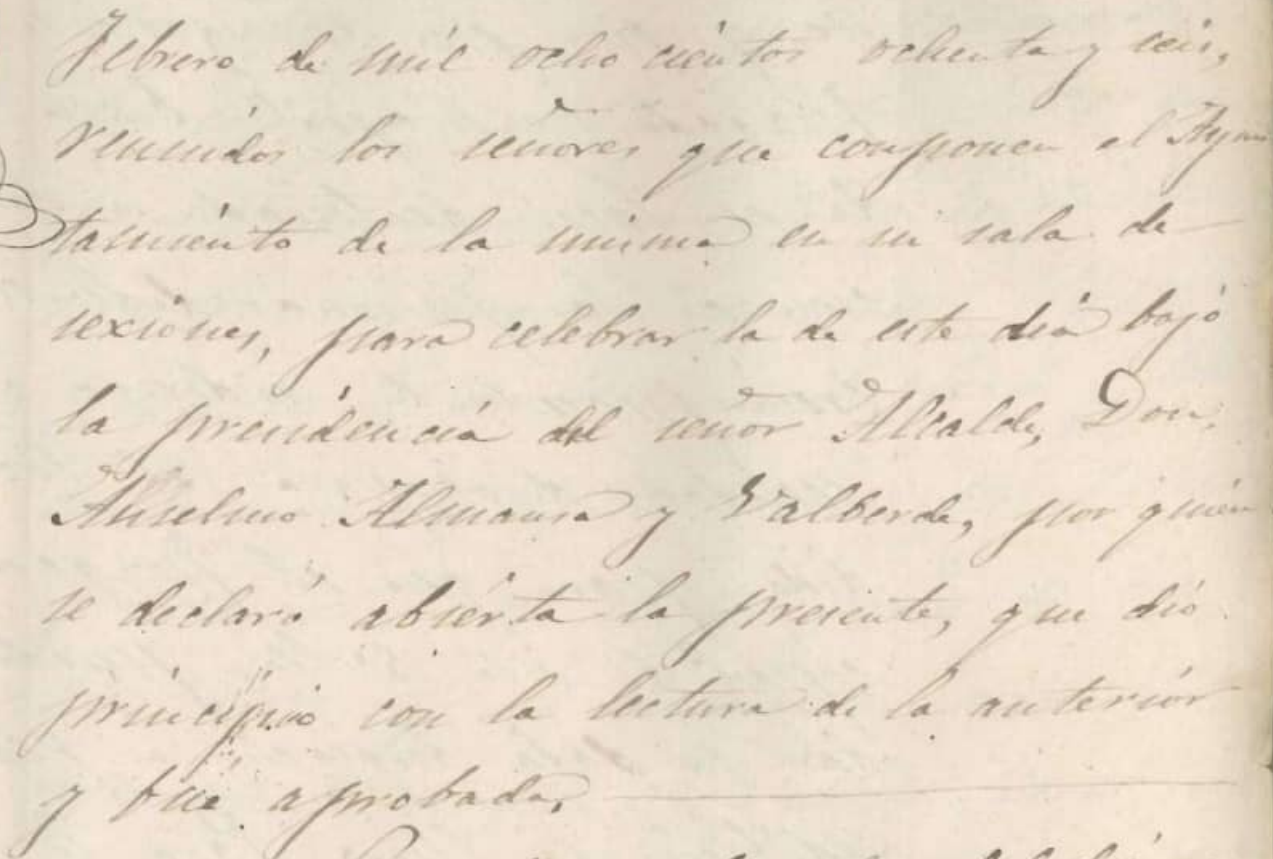 Febrero de mil ocho cientos ochenta y seis,
reunidos los señores que componen el Ayun
tamiento de la misma en su sala de
sexiones, para celebrar la de este dia bajo
la presidencia del señor Alcalde, Don,
Anselmo Almansa y Valberde, por quien
se declaró abierta la presente, que dió
principio con la lectura de la anterior
y fué aprobada,